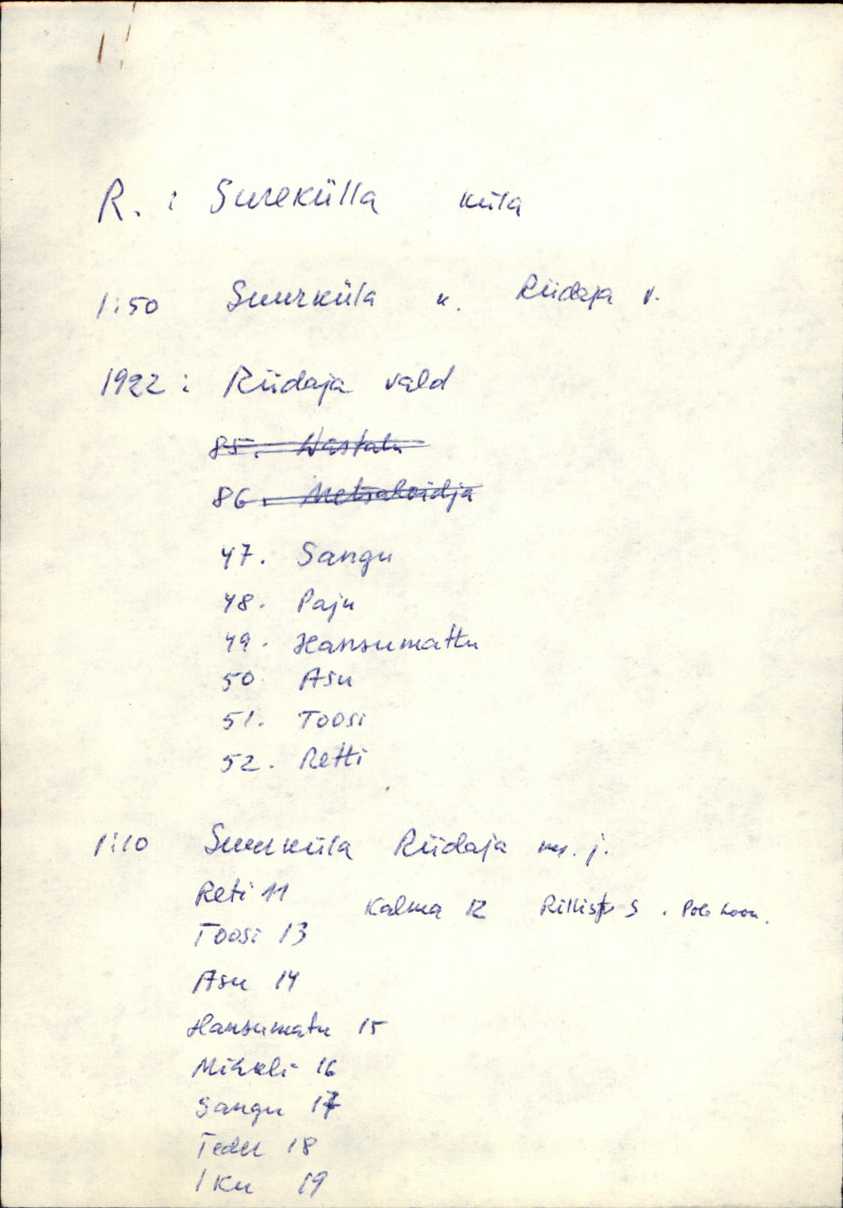 R. : Surekülla küla
1:50 Suurküla k. Riidaja v.
1922 : Riidaja vald
85. Wastalu
86. Metsahoidja
47. Sangu
48. Paju
49. Hansumattu
50 Asu
51. Toosi
52. Retti
1:10 Suurküla Riidaja j.
Reti 11
Kalma 12 Rillist S.
Toosi 13
Asu 14
Hansumatu 15
Mihkli 16
Sangu 17
Teder 18
Iku 19